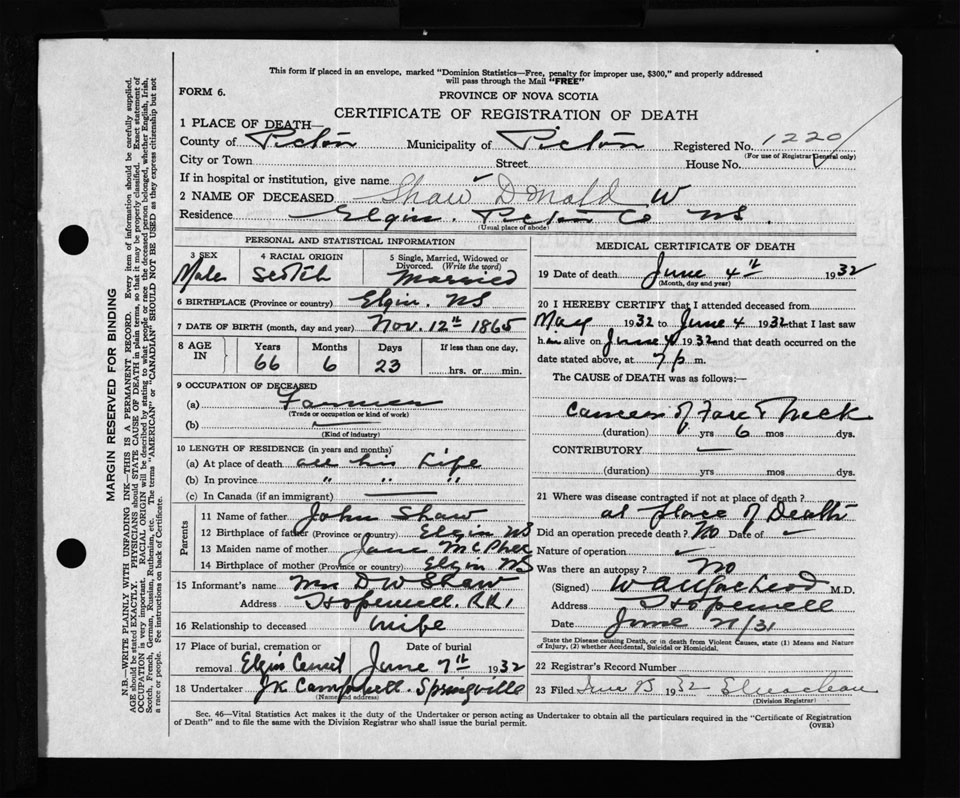 This form if placed in an envelope, marked "Dominion Statistics—Free, penalty for improper use, $300," and properly addressed
will pass through the Mail "FREE"
FORM 6.
PROVINCE OF NOVA SCOTIA
CERTIFICATE OF REGISTRATION OF DEATH
1 PLACE OF DEATH—
County of Pictou Municipality of Pictou Registered No. 1220
(For use of Registrar General only)
City or Town Street House No.
If in hospital or institution, give name
2 NAME OF DECEASED Shaw Donald W
Residence Elgin. Pictou Co NS.
(Usual place of abode)
PERSONAL AND STATISTICAL INFORMATION
3 SEX 4 RACIAL ORIGIN 5 Single, Married, Widowed or
Divorced. (Write the word)
Male Scotch Married
6 BIRTHPLACE (Province or country) Elgin. NS
7 DATE OF BIRTH (month, day and year) Nov. 12th 1865
8 AGE IN Years Months Days If less than one day,
66 6 23 hrs. or min.
9 OCCUPATION OF DECEASED
(a) Farmer
(Trade or occupation or kind of work)
(b) —
(Kind of industry)
10 LENGTH OF RESIDENCE (in years and months)
(a) At place of death all his Life
(b) In province " " "
(c) In Canada (if an immigrant) —
Parents
11 Name of father John Shaw
12 Birthplace of father (Province or country) Elgin NS
13 Maiden name of mother Jane McPhee
14 Birthplace of mother (Province or country) Elgin NS
15 Informant's name Mrs D W Shaw
Address Hopewell. RR1
16 Relationship to deceased wife
17 Place of burial, cremation or Date of burial
removal Elgin June 7th 1932
18 Undertaker JK Campbell. Springville
(Name and address)
MEDICAL CERTIFICATE OF DEATH
19 Date of death June 4th 1932
(Month, day and year)
20 I HEREBY CERTIFY that I attended deceased from
May 1932 to June 4 1932 that I last saw
him alive on June 4 1932 and that death occurred on the
date stated above, at 7 p m.
The CAUSE of DEATH was as follows:—
Cancer of Face & Neck
(duration) yrs 6 mos dys.
CONTRIBUTORY —
(duration) yrs mos dys.
21 Where was disease contracted if not at place of death?
at place of Death
Did an operation precede death? No Date of
Nature of operation
Was there an autopsy? No
(Signed) W A MacLeod M.D.
Address Hopewell
Date June /31
State the Disease causing Death, or in death from Violent Causes, state (1) Means and Nature
of Injury, (2) whether Accidental, Suicidal or Homicidal.
22 Registrar's Record Number
23 Filed 1932
(Division Registrar)
Sec. 46—Vital Statistics Act makes it the duty of the Undertaker or person acting as Undertaker to obtain all the particulars required in the "Certificate of Registration
of Death" and to file the same with the Division Registrar who shall issue the burial permit.
(OVER)
MARGIN RESERVED FOR BINDING
N.B.—WRITE PLAINLY WITH UNFADING INK—THIS IS A PERMANENT RECORD. Every item of information should be carefully supplied.
AGE should be stated EXACTLY. PHYSICIANS should STATE CAUSE OF DEATH in plain terms, so that it may be properly classified. Exact statement of
OCCUPATION is very important. RACIAL ORIGIN will be described by stating to what people or race the deceased person belonged, whether English, Irish,
Scotch, French, German, Russian, Ruthenian, etc. The terms "AMERICAN" or "CANADIAN" SHOULD NOT BE USED as they express citizenship but not
a race or people. See instructions on back of Certificate.